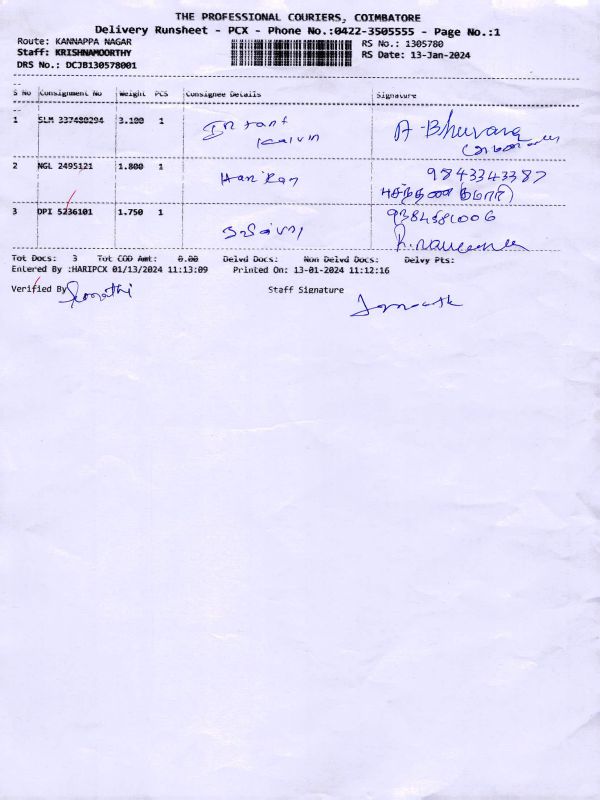 THE PROFESSIONAL COURIERS, COIMBATORE
Delivery Runsheet - PCX - Phone No.:0422-3505555 - Page No.:1
Route: KANNAPPA NAGAR
RS No.: 1305780
Staff: KRISHNAMOORTHY
RS Date: 13-Jan-2024
DRS No.: DCJB130578001
S No Consignment No Weight PCS Consignee Details Signature
1 SLM 337480294 3.100 1 A-Bhuvana
2 NGL 2495121 1.800 1 Hari Ram 9843343387
3 DPI 5236101 1.750 1 9384581006
Tot Docs: 3 Tot COD Amt: 0.00 Delvd Docs: Non Delvd Docs: Delvy Pts:
Entered By :HARIPCX 01/13/2024 11:13:09 Printed On: 13-01-2024 11:12:16
Verified By Staff Signature